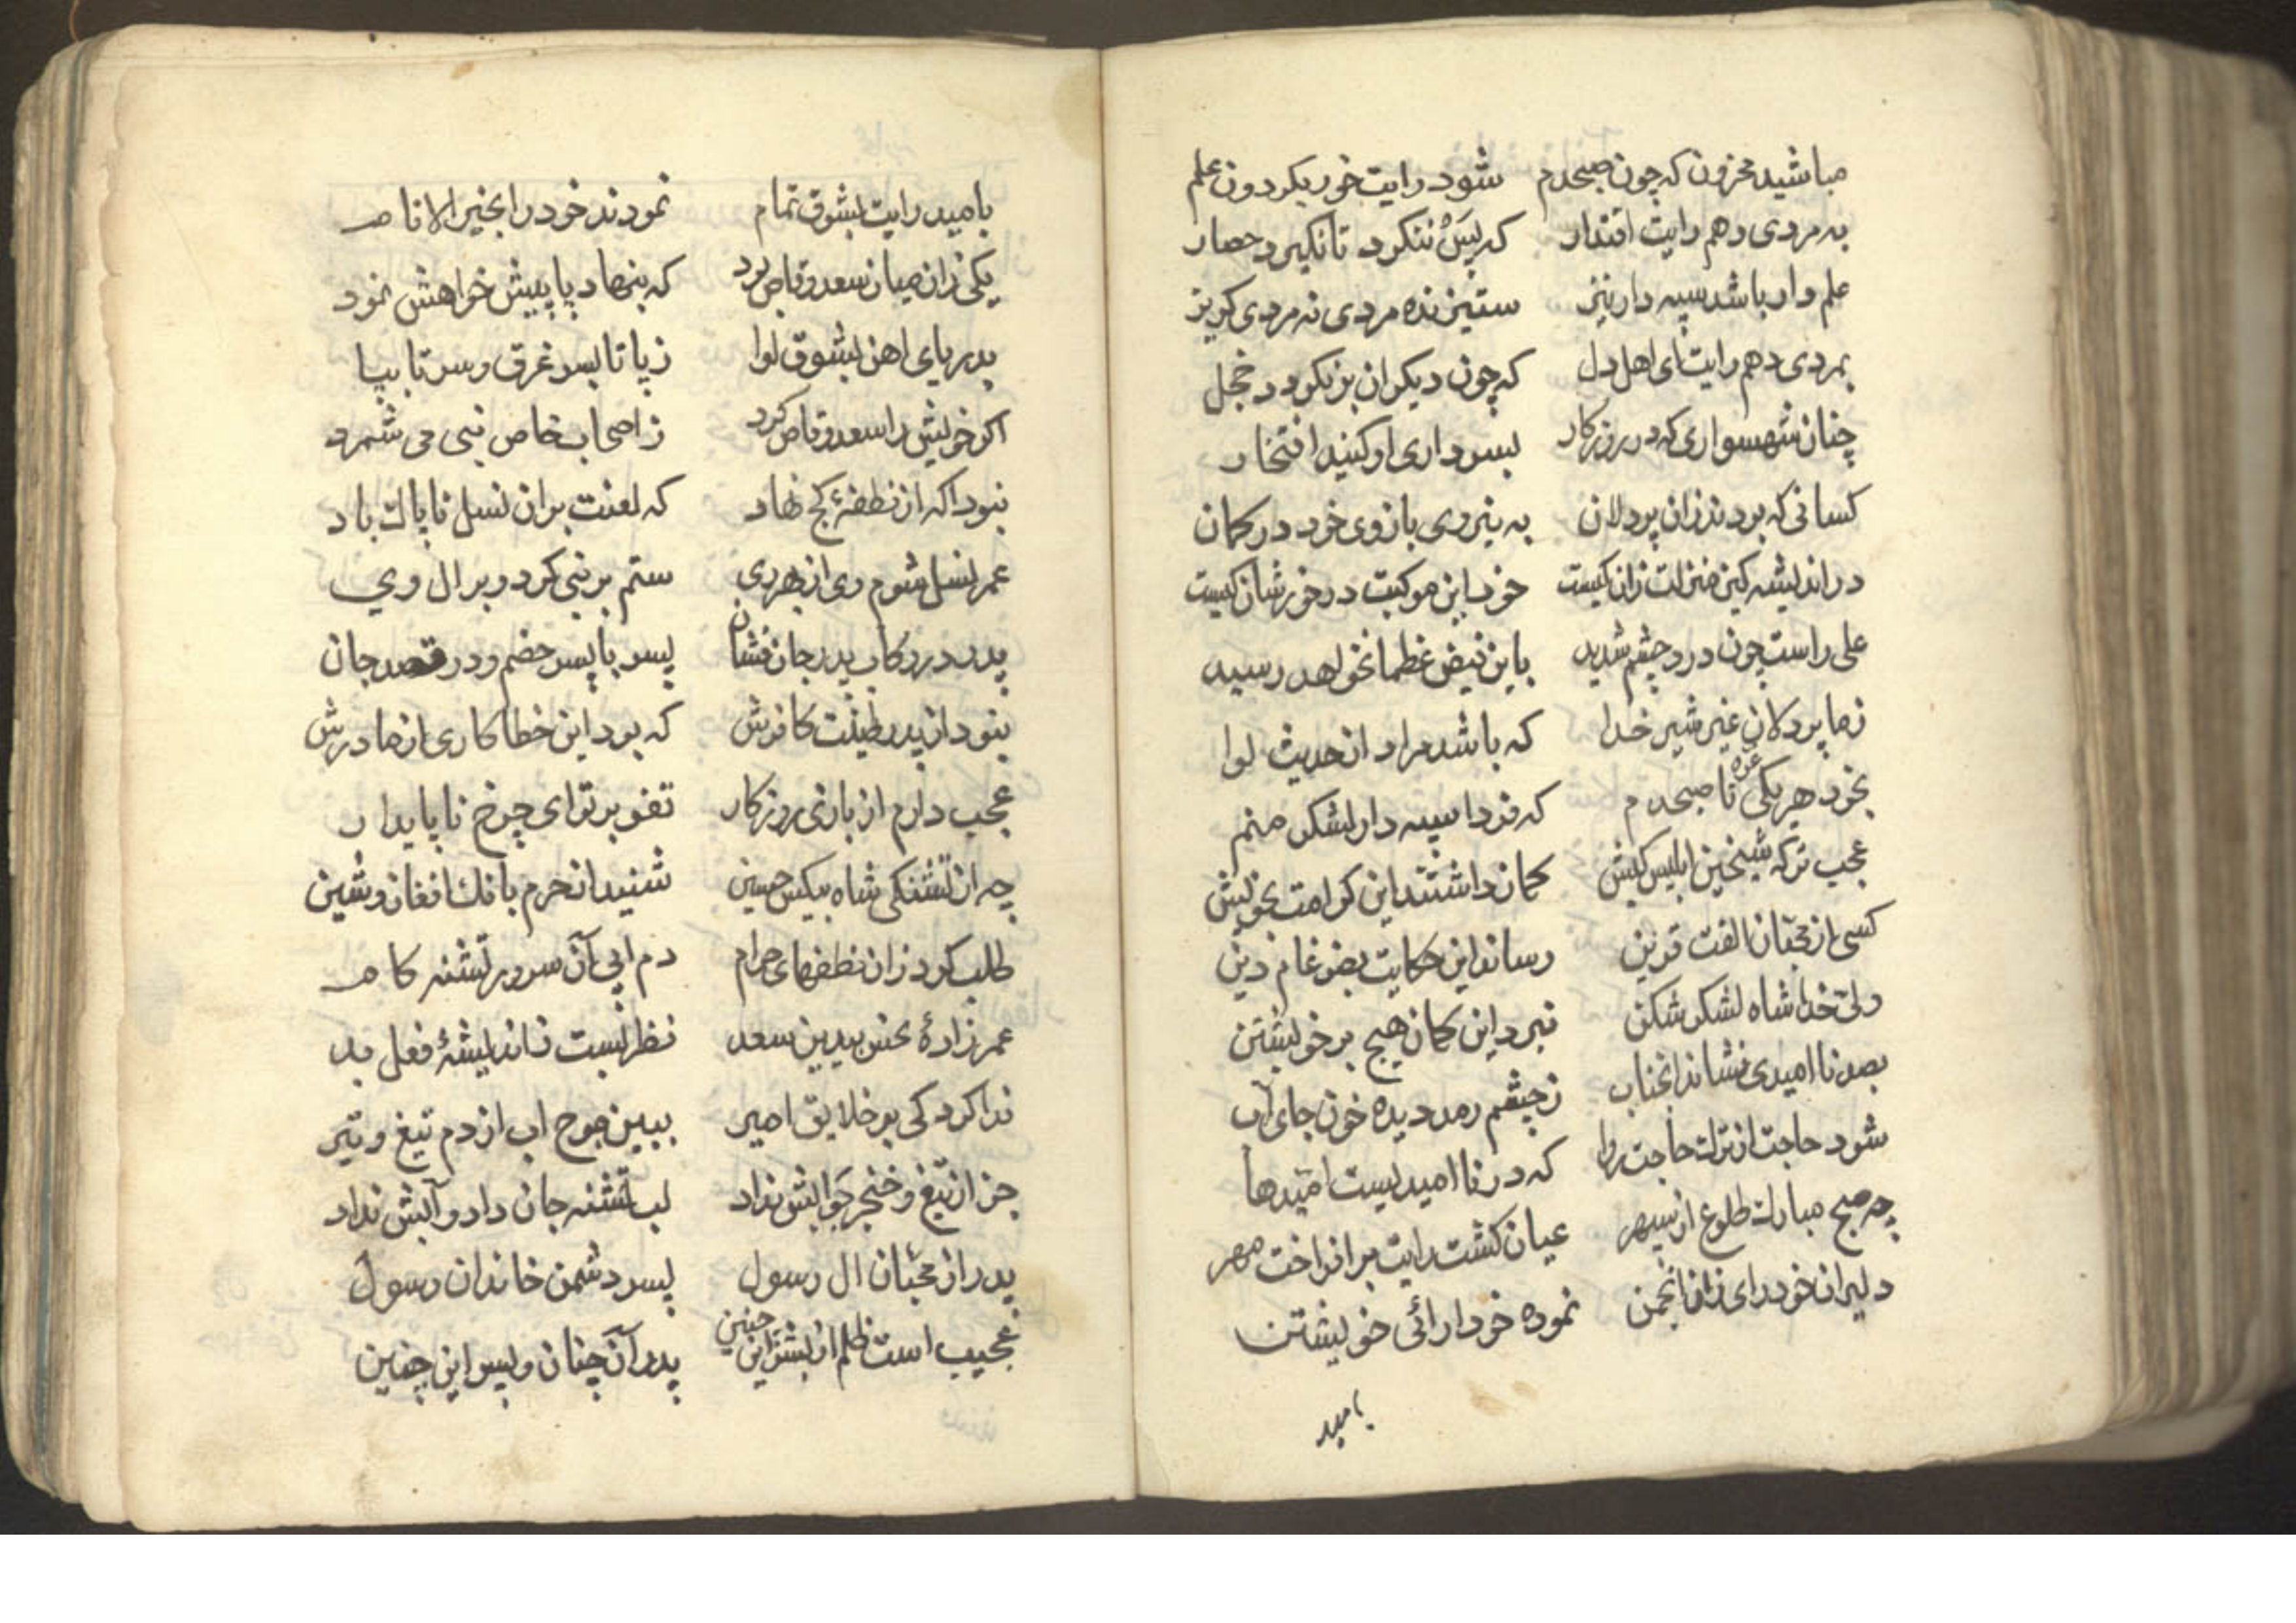 مباشید محزون که چون صبحدم شود رایت خور بکردون علم
به مردی دهم رایت اقتدار که پس ننکرد تا نکیرد حصار
علم دار باشد سپه دار نیز ستیزنده مردی نه مردی کریز
بمردی دهم رایت ای اهل دل که چون دیکران بر نکردد خجل
چنان شهسواری که در روزکار بسرداری او کنید افتخار
کسانی که بودند زان پردلان به نیروی بازوی خود در کمان
در اندیشه کین منزلت زان کیست خود این موکبت در خور شان کیست
علی راست چون درد چشم شدید باین فیض عظما نخواهد رسید
زما پردلان غیر شیر خدا که باشد مراد از حدیث لوا
بخود هر یکی غره تا صبحدم که فردا سپه دار لشکر منم
عجب ترکه شیخین ابلیس کیش کمان داشتند این کرامت بخویش
کسی از محبان الفت قرین رساند این حکایت بضرغام دین
ولی خدا شاه لشکر شکن نبرد این کمان هیچ بر خویشتن
بصد ناامیدی فشاند انجناب زچشم رمد دیده خون جای آب
شود حاجت از ترک حاجت روا که در ناامیدیست امیدها
چه صبح مبارک طلوع از سپهر عیان کشت رایت برافراخت مهر
دلیران خودرای زان انجمن نموده خودارائی خویشتن
بامید
بامید رایت بشوق تمام نمودند خود را بخیر الانام
یکی زان میان سعد وقاص بود که بنهاد پا پیش خواهش نمود
بدریای اهن بشوق لوا زپا تا بسر غرق و سر تا بپا
اکر خویش را سعد وقاص کرد ز اصحاب خاص نبی می شمرد
نبود اکه از نطفهٔ کج نهاد که لعنت بران نسل ناپاک باد
عمر نسل شوم وی از بهر ری ستم بر نبی کرد و بر ال وی
پدر در رکاب پدر جان فشان پسر با پسر خصم و در قصد جان
بنود از پدر طینت کافرش که بود این خطا کاری از مادرش
عجب دارم از بازی روزکار تفو بر تو ای چرخ ناپایدار
چه از تشنکی شاه بیکس حسین شنید از حرم بانک افغان و شین
طلب کرد زان نطفهای حرام دم ابی آن سرور تشنه کام
عمر زادهٔ نحس بیدین سعد نظر بست ز اندیشهٔ فعل بد
ندا کرد کی بر خلایق امیر ببین موج اب از دم تیغ و تیر
جز از تیغ و خنجر جوابش نداد لب تشنه جان داد و آبش نداد
پدر از محبان ال رسول پسر دشمن خاندان رسول
عجیب است ظلم از بشر این چنین پدر آن چنان و پسر این چنین